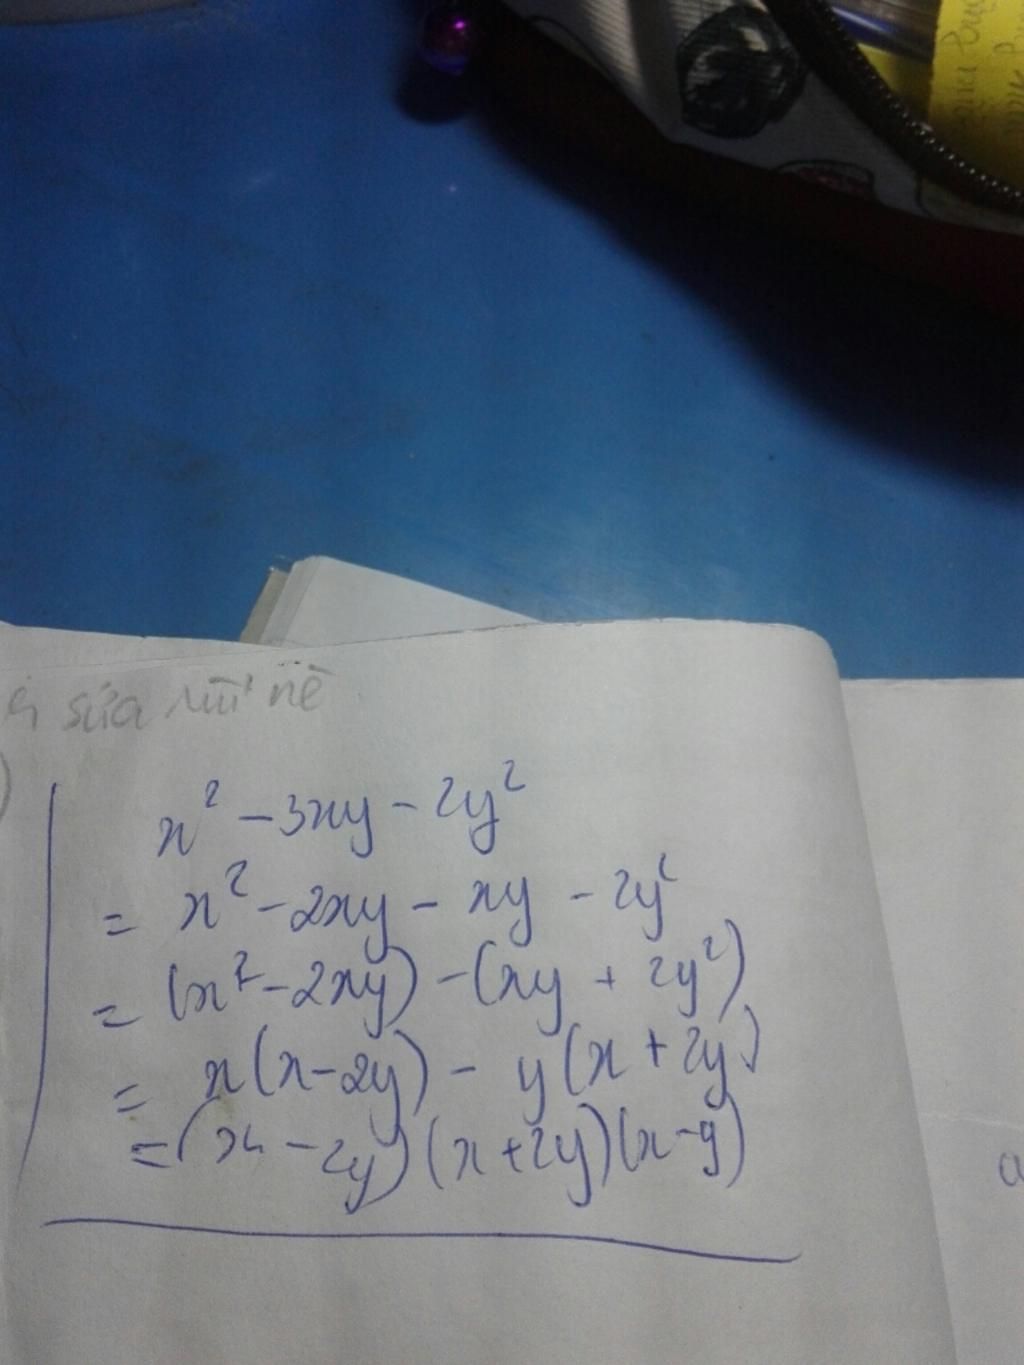 sửa rùi nè
x² - 3xy - 2y²
= x² - 2xy - xy - 2y²
= (x² - 2xy) - (xy + 2y²)
= x(x - 2y) - y(x + 2y)
= (x - 2y)(x + 2y)(x - y)